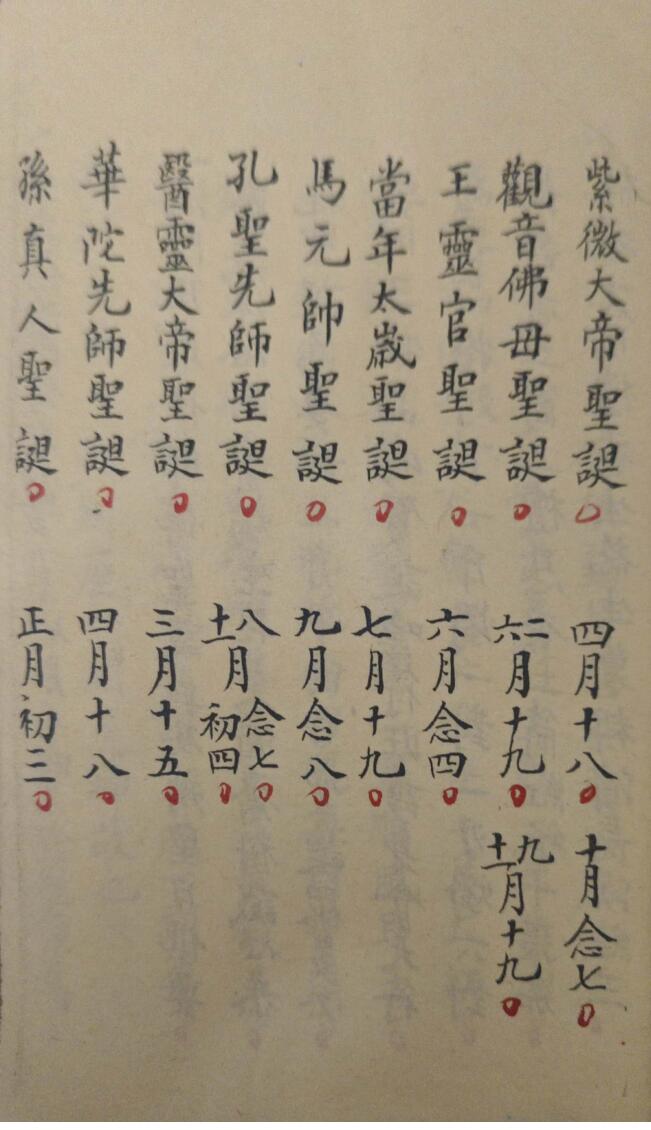 紫微大帝聖誕 四月十八 十月念七
觀音佛母聖誕 二六月十九 九十一月十九
王靈官聖誕 六月念四
當年太歲聖誕 七月十九
馬元帥聖誕 九月念八
孔聖先師聖誕 八十一月念七初四
醫靈大帝聖誕 三月十五
華陀先師聖誕 四月十八
孫真人聖誕 正月初三